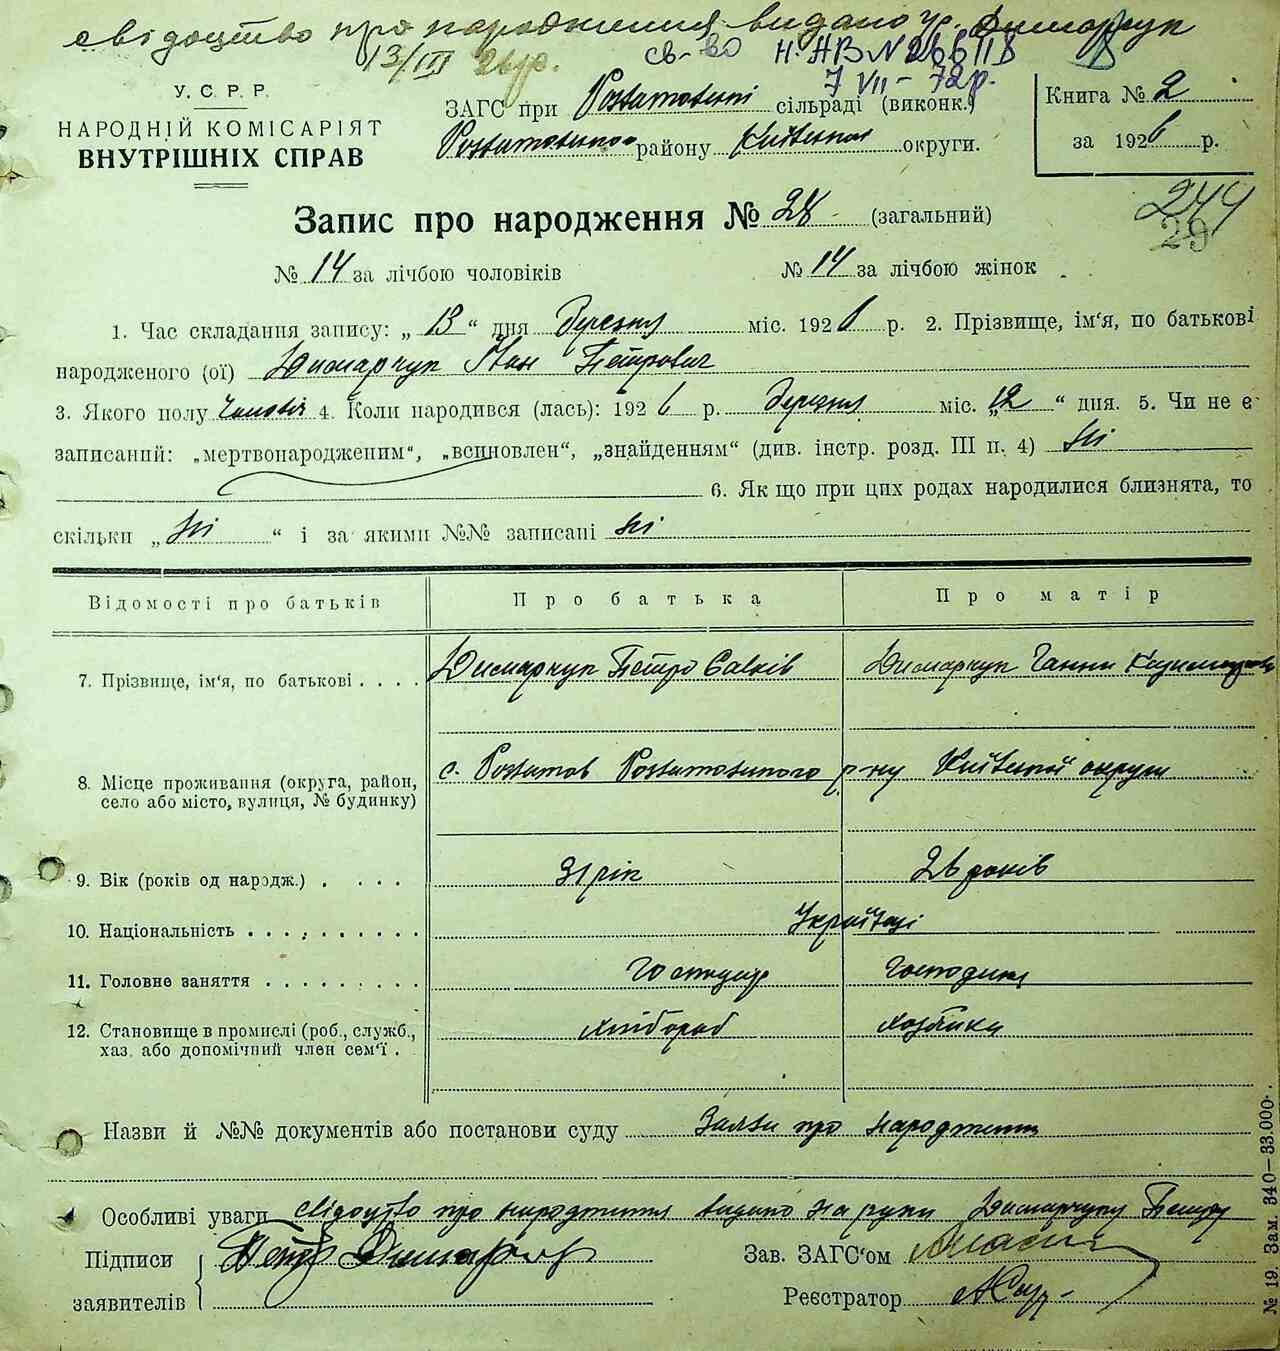 свідоцтво про народження видано гр. Димарчук
13/III 26р. св-во Н-АВ N 266118
7 VII - 72р.
У. С. Р. Р.
НАРОДНІЙ КОМІСАРІЯТ
ВНУТРІШНІХ СПРАВ
ЗАГС при сільраді (виконк.)
району Київської округи.
Книга № 2
за 1926 р.
Запис про народження № 28 (загальний)
244
29
№ 14 за лічбою чоловіків № 14 за лічбою жінок
1. Час складання запису: „ 13 “ дня березня міс. 1926 р. 2. Прізвище, ім'я, по батькові
народженого (ої) Димарчук Іван Петрович
3. Якого полу Чоловіч 4. Коли народився (лась): 1926 р. березня міс. „12“ дня. 5. Чи не є
записаний: „мертвонародженим“, „всиновлен“, „знайденням“ (див. інстр. розд. III п. 4) Ні
6. Як що при цих родах народилися близнята, то
скільки „ Ні “ і за якими №№ записані Ні
Відомості про батьків Про батька Про матір
7. Прізвище, ім'я, по батькові . . . . Димарчук Петро Савків Димарчук Ганни
8. Місце проживання (округа, район,
село або місто, вулиця, № будинку) с. р-ну Київської округи
9. Вік (років од народж.) . . . . 31 рік 26 років
10. Національність . . . . . . . . . . Українці
11. Головне заняття . . . . . . . . . Господар Господиня
12. Становище в промислі (роб., служб.,
хаз. або допомічний член сем'ї . хлібороб хозяйка
Назви й №№ документів або постанови суду Заява про народження
Особливі уваги свідоцтво про народження видано на руки Димарчуку Петру
Підписи
заявителів
Петро Димарчук
Зав. ЗАГС'ом
Реєстратор
№ 19. Зам. 340—33.000.